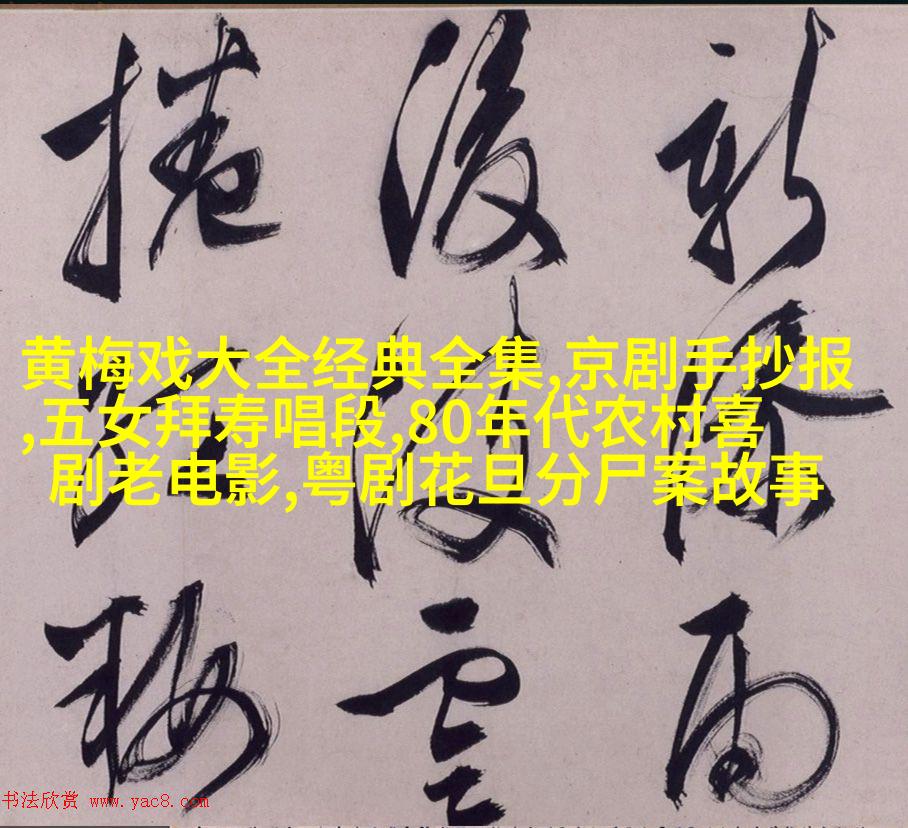 新雨
後雲
捲梅
黄梅戏大全经典全集,京剧手抄报
,五女拜寿唱段,80年代农村喜
剧老电影,粤剧花旦分尸案故事
书法欣赏 www.yac8.com